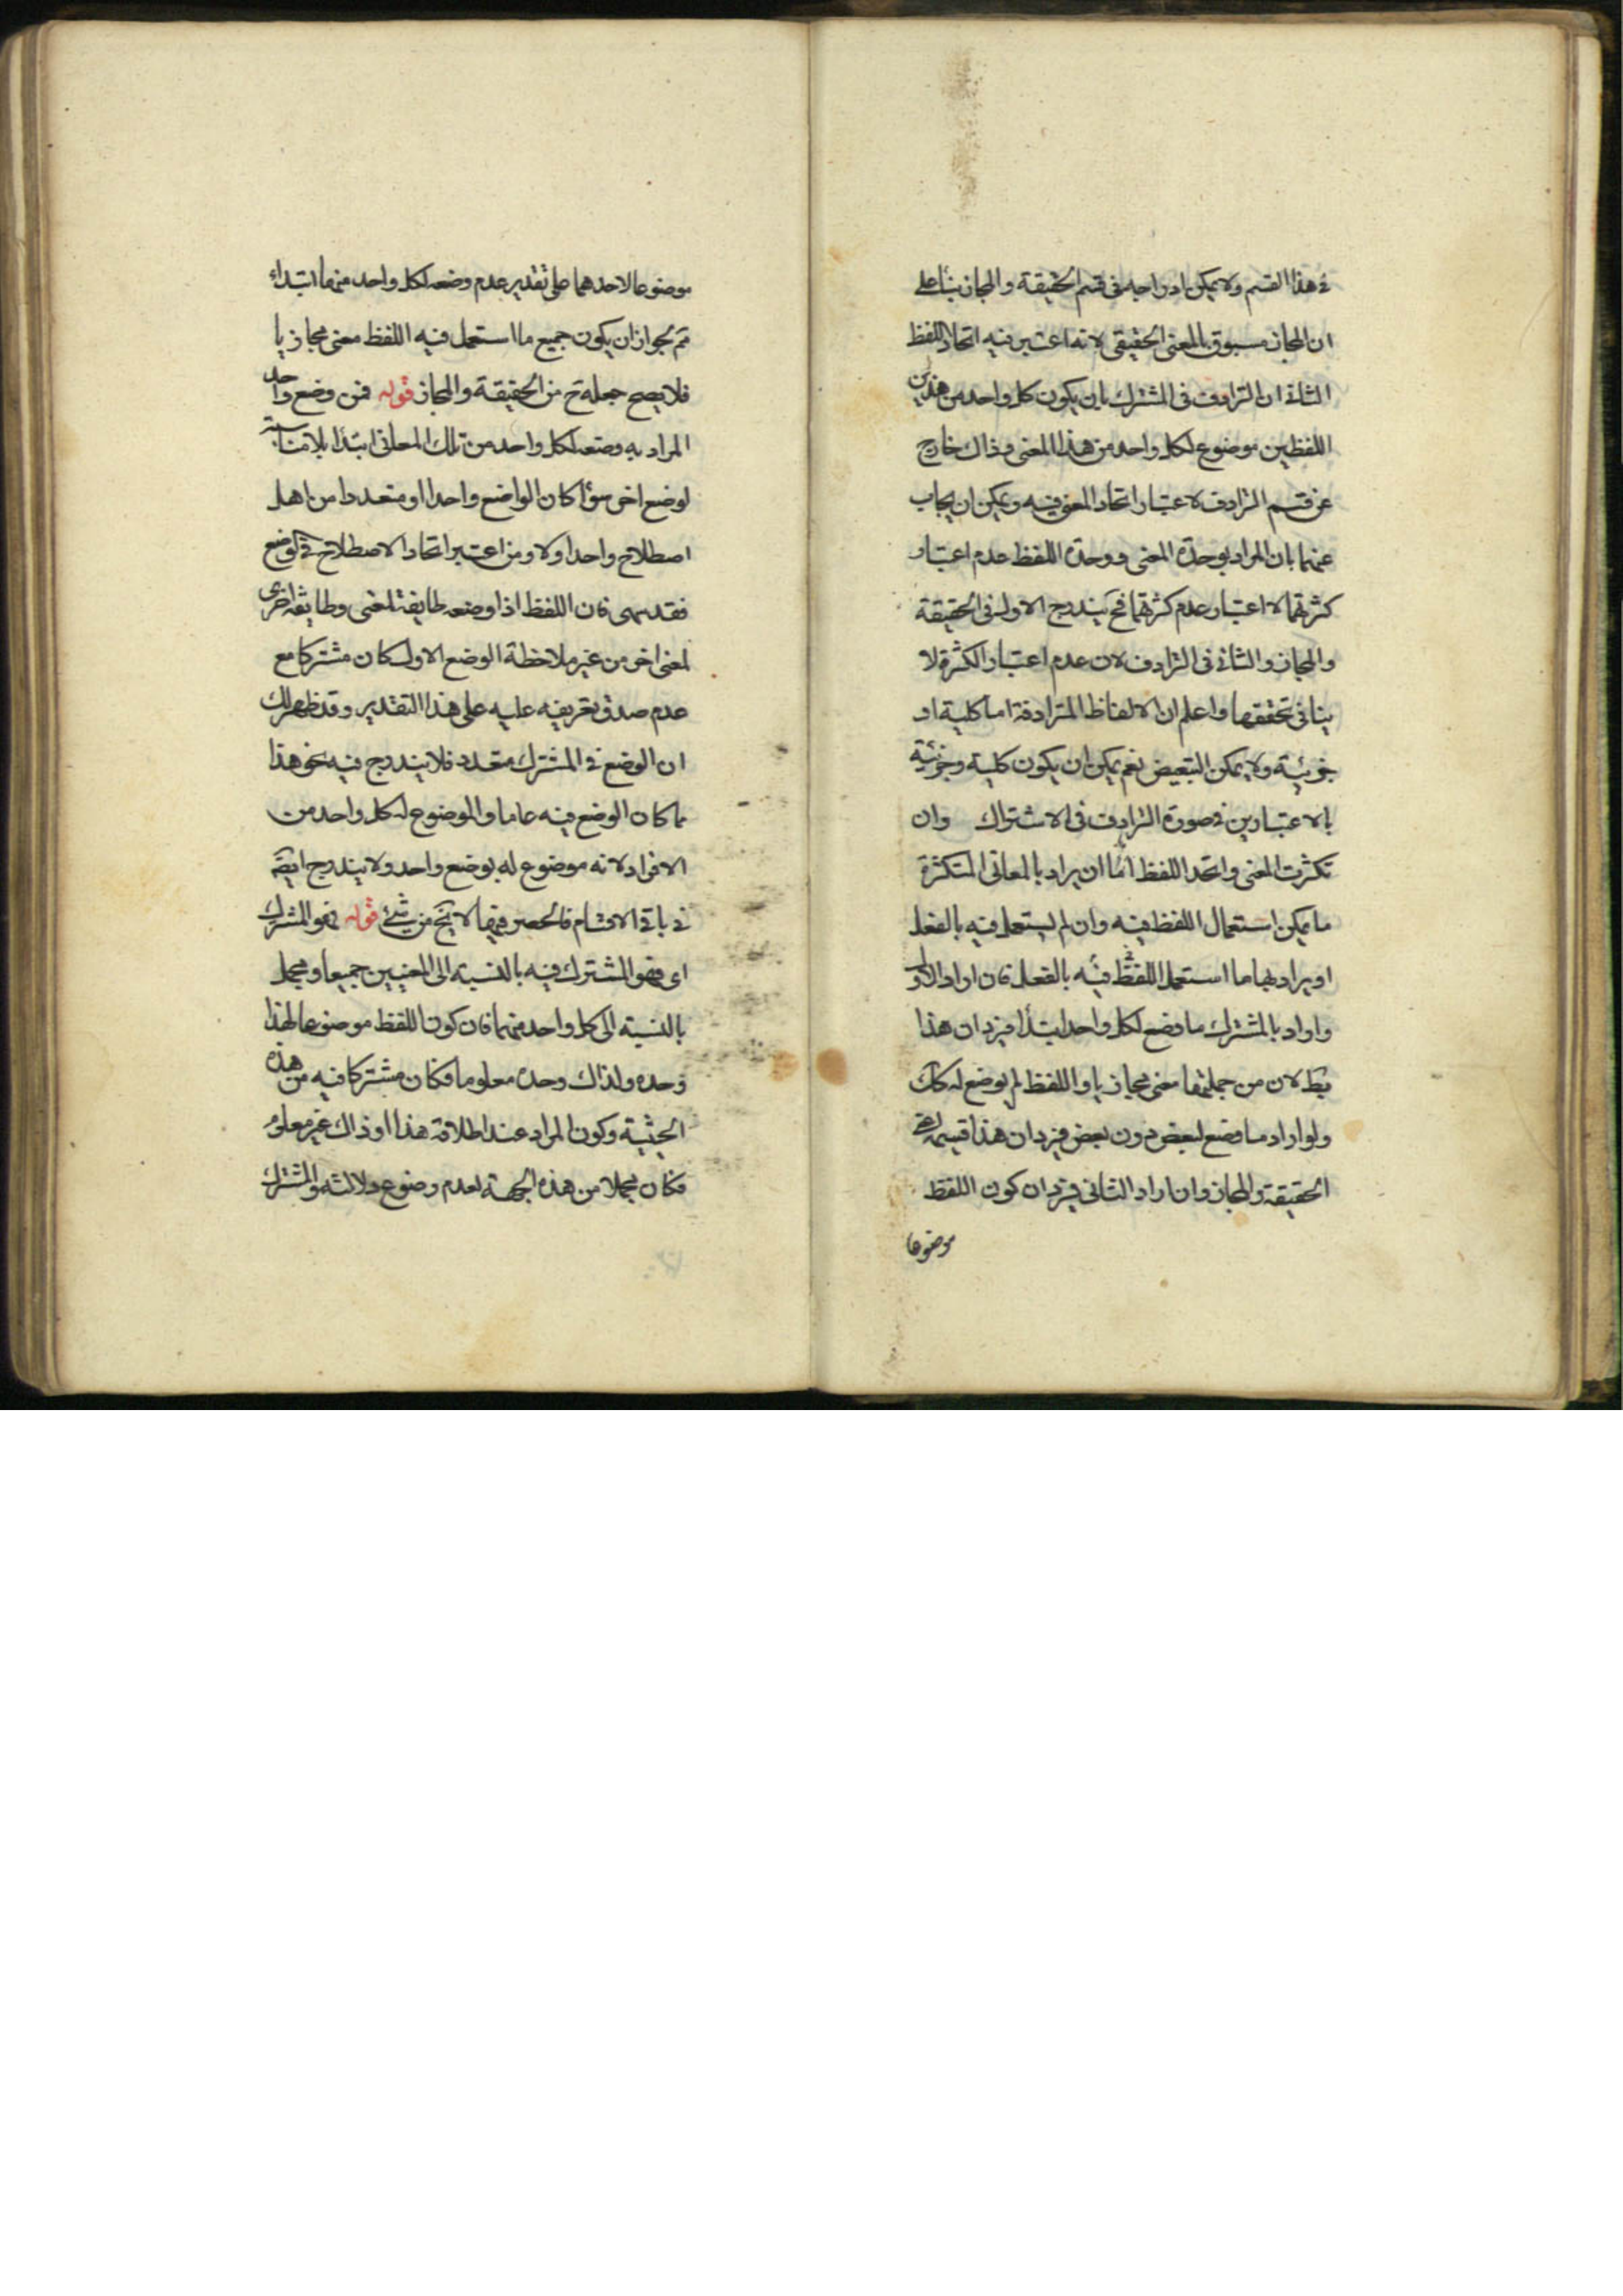 فی هذا القسم ولا یمکن ادراجه فی قسم الحقیقة والمجاز بناء علی
ان المجاز مسبوق بالمعنی الحقیقی لانه اعتبر فیه اتحاد اللفظ
الثانی ان الترادف فی المشترک بان یکون کل واحد من هذین
اللفظین موضوع لکل واحد من هذا المعنی وذاک خارج
عن قسم الترادف لاعتبار اتحاد المعنی فیه ویمکن ان یجاب
عنهما بان المراد بوحدة المعنی ووحدة اللفظ عدم اعتبار
کثرتهما لا اعتبار عدم کثرتهما فح یندرج الاول فی الحقیقة
والمجاز والثانی فی الترادف لان عدم اعتبار الکثرة لا
ینافی تحققها واعلم ان الالفاظ المترادفة اما کلیة او
جزئیة ولا یمکن التبعیض نعم یمکن ان یکون کلیة وجزئیة
بالاعتبارین فی صورة الترادف فی الاشتراک وان
تکثرت المعنی واتحد اللفظ اما ان یراد بالمعانی المتکثرة
ما یمکن استعمال اللفظ فیه وان لم یستعمل فیه بالفعل
او یراد بها ما استعمل اللفظ فیه بالفعل فان اراد الاول
واراد بالمشترک ما وضع لکل واحد ابتدأ فیرد ان هذا
بط لان من جملتها معنی مجازیا واللفظ لم یوضع له کک
ولو اراد ما وضع لبعض دون بعض فیرد ان هذا قسیمه
الحقیقة والمجاز وان اراد الثانی فیرد ان کون اللفظ
موضوعا
موضوعا لاحدهما علی تقدیر عدم وضعه لکل واحد منهما ابتداء
ثم یجواز ان یکون جمیع ما استعمل فیه اللفظ معنی مجازیا
فلا یصح جعله ح من الحقیقة والمجاز قوله فمن وضع واحد
المراد به وضعه لکل واحد من تلک المعانی ابتدأ بلا مناسبة
لوضع اخر سوأ کان الواضع واحدا او متعددا من اهل
اصطلاح واحد اولا ومن اعتبر اتحاد الاصطلاح فی الوضع
فقد سهی فان اللفظ اذا وضعه طایفة لمعنی وطایفة اخری
لمعنی اخر من غیر ملاحظة الوضع الاول کان مشترکا مع
عدم صدق تعریفه علیه علی هذا التقدیر وقد ظهر لک
ان الوضع فی المشترک متعدد فلا یندرج فیه نحو هذا
مما کان الوضع فیه عاما والموضوع له کل واحد من
الافراد لانه موضوع له بوضع واحد ولا یندرج ایضا
فی باقی الاقسام فالحصر فیها لا یخ من شئ قوله فهو المشترک
ای فهو المشترک فیه بالنسبة الی المعنیین جمیعا ومجمل
بالنسبة الی کل واحد منهما فان کون اللفظ موضوعا لهذا
وحده ولذاک وحده معلوما فکان مشترکا فیه من هذه
الحیثیة وکون المراد عند اطلاقه هذا او ذاک غیر معلوم
فکان مجملا من هذه الجهة لعدم وضوع دلالته والمشترک